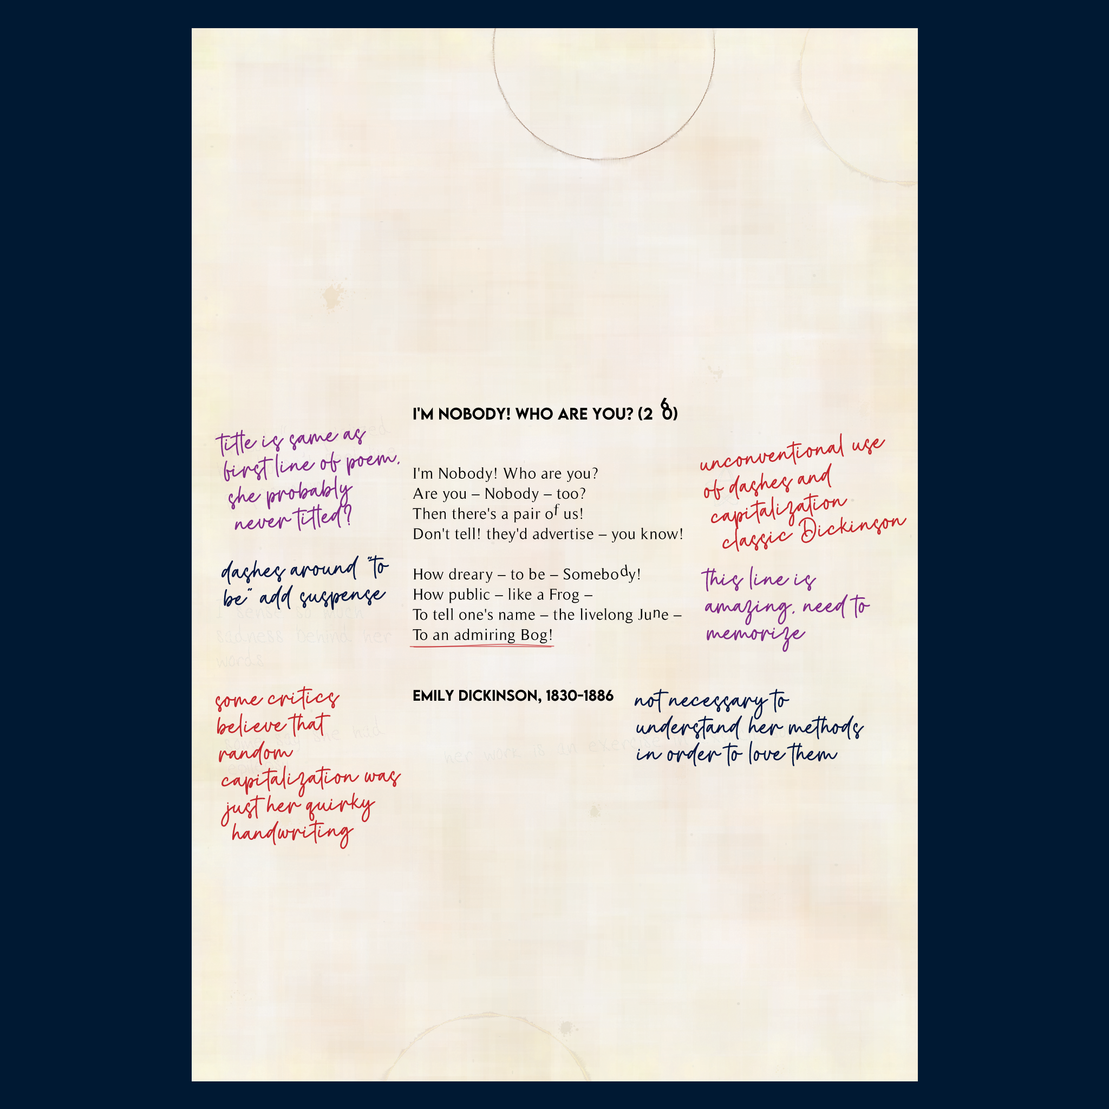 I'M NOBODY! WHO ARE YOU? (260)
title is same as
first line of poem,
she probably
never titled?
I'm Nobody! Who are you?
Are you – Nobody – too?
Then there's a pair of us!
Don't tell! they'd advertise – you know!
unconventional use
of dashes and
capitalization
classic Dickinson
dashes around "to
be" add suspense
How dreary – to be – Somebody!
How public – like a Frog –
To tell one's name – the livelong June –
To an admiring Bog!
this line is
amazing, need to
memorize
some critics
believe that
random
capitalization was
just her quirky
handwriting
EMILY DICKINSON, 1830-1886
not necessary to
understand her methods
in order to love them